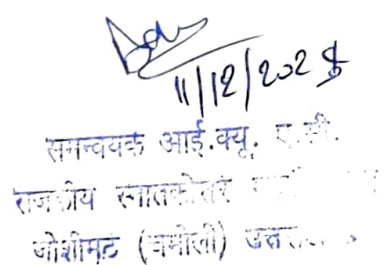 11/12/202
समन्वयक आई.क्यू. ए.सी.
राजकीय स्नातकोत्तर
जोशीमठ (चमोली)